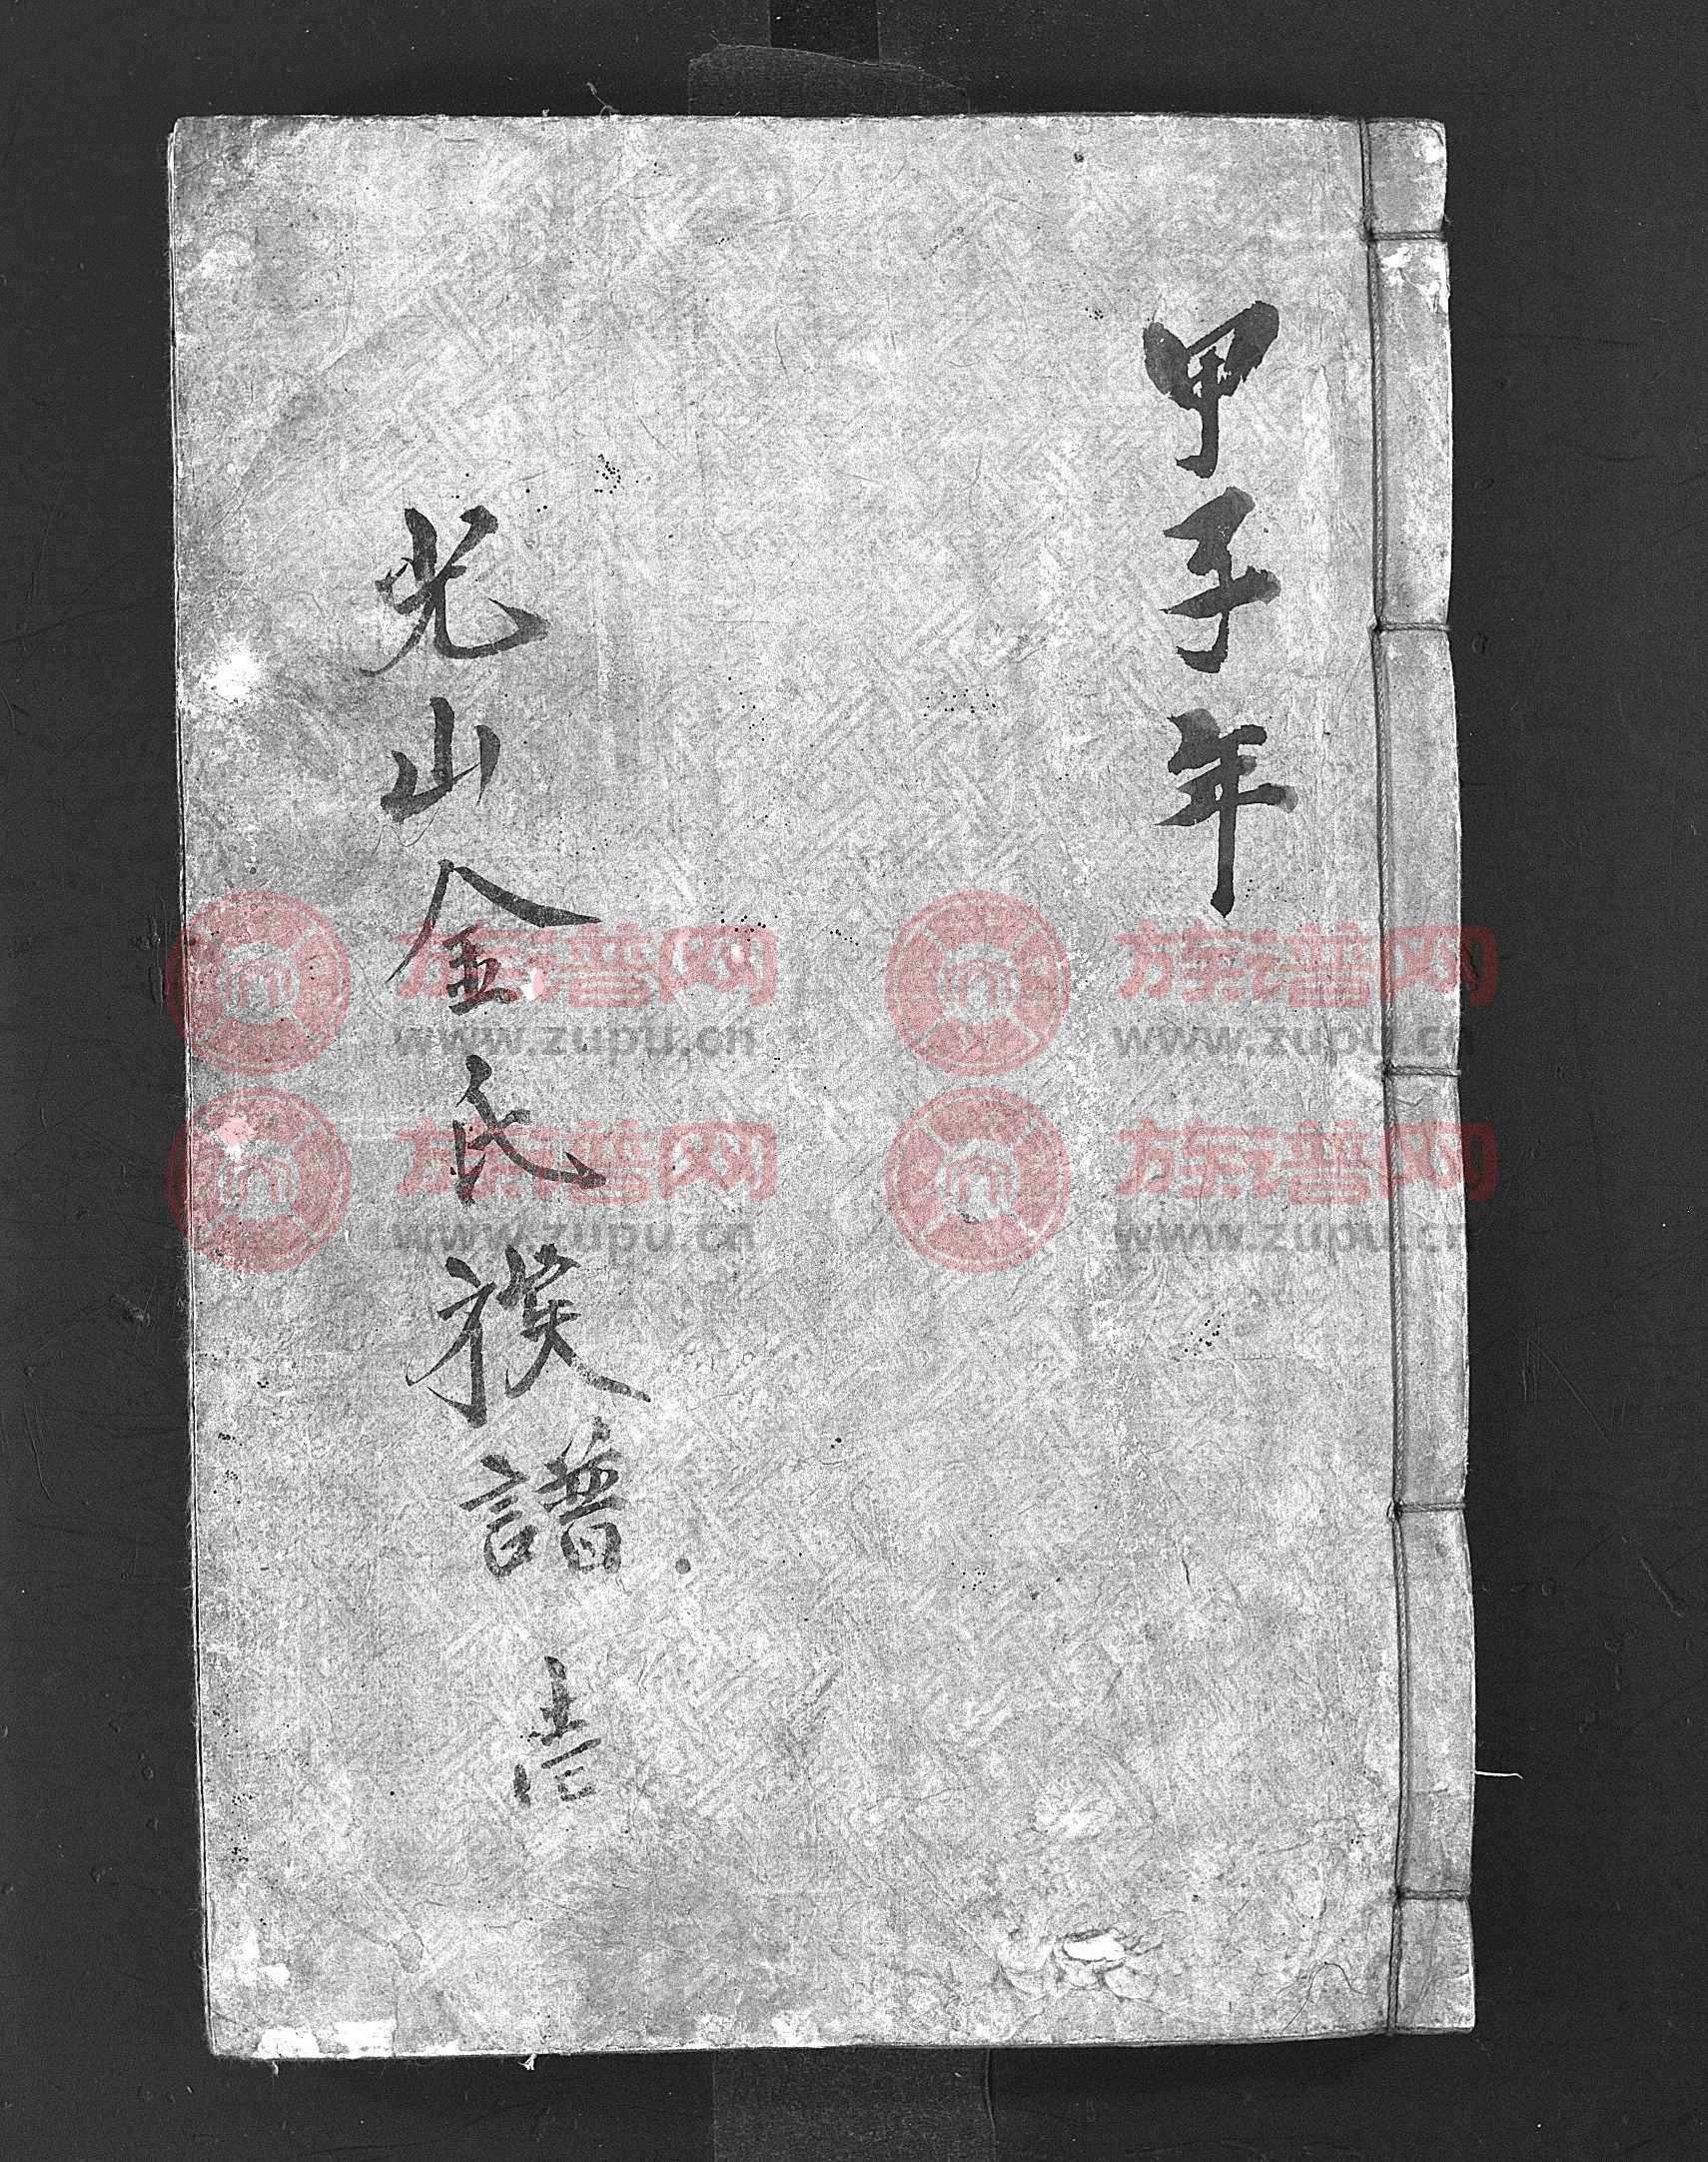 甲子年
光山金氏族譜 壹
族谱网
www.zupu.cn
族谱网
www.zupu.cn
族谱网
www.zupu.cn
族谱网
www.zupu.cn